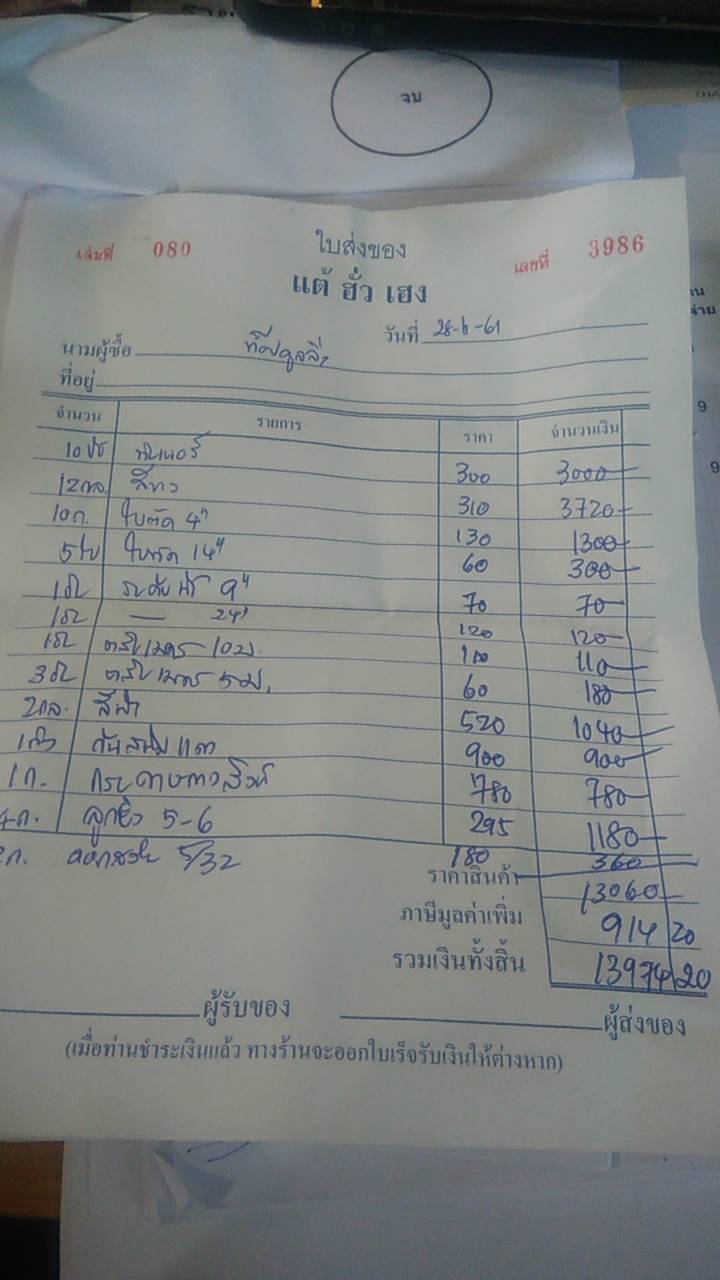 จบ
เล่มที่ 080
ใบส่งของ
เลขที่ 3986
แต้ ฮั่ว เฮง
วันที่ 28-6-61
นามผู้ซื้อ
ที่อยู่
จำนวน รายการ ราคา จำนวนเงิน
10 ปี๊ป ทินเนอร์ 300 3000
12 กล. สีขาว 310 3720
10 ก. ใบตัด 4" 130 1300
5 ใบ ใบตัด 14" 60 300
1 อัน ระดับน้ำ 9" 70 70
1 อัน — 24" 120 120
1 อัน ตลับเมตร 10 ม. 110
3 อัน ตลับเมตร 5 ม. 60 180
2 กล. สีฟ้า 520 1040
900 900
1 ก. กระดาษทราย 780 780
4 ก. 5-6 295 1180
2 ก. ดอกสว่าน 5/32 180 360
ราคาสินค้า 13060
ภาษีมูลค่าเพิ่ม 914 20
รวมเงินทั้งสิ้น 13974 20
ผู้รับของ ผู้ส่งของ
(เมื่อท่านชำระเงินแล้ว ทางร้านจะออกใบเร็จรับเงินให้ต่างหาก)